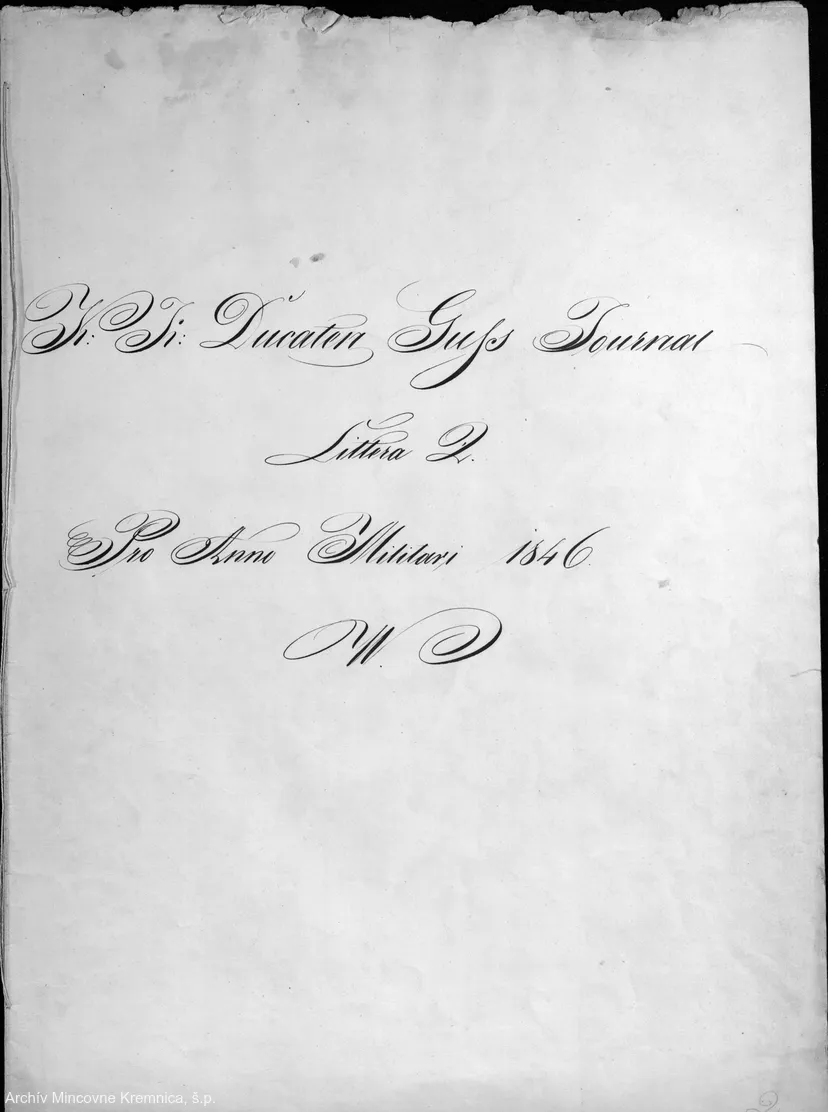 K: K: Ducaten Guſs Journal
Littera Q.
Pro Anno Militari 1846.
Archív Mincovne Kremnica, š.p.